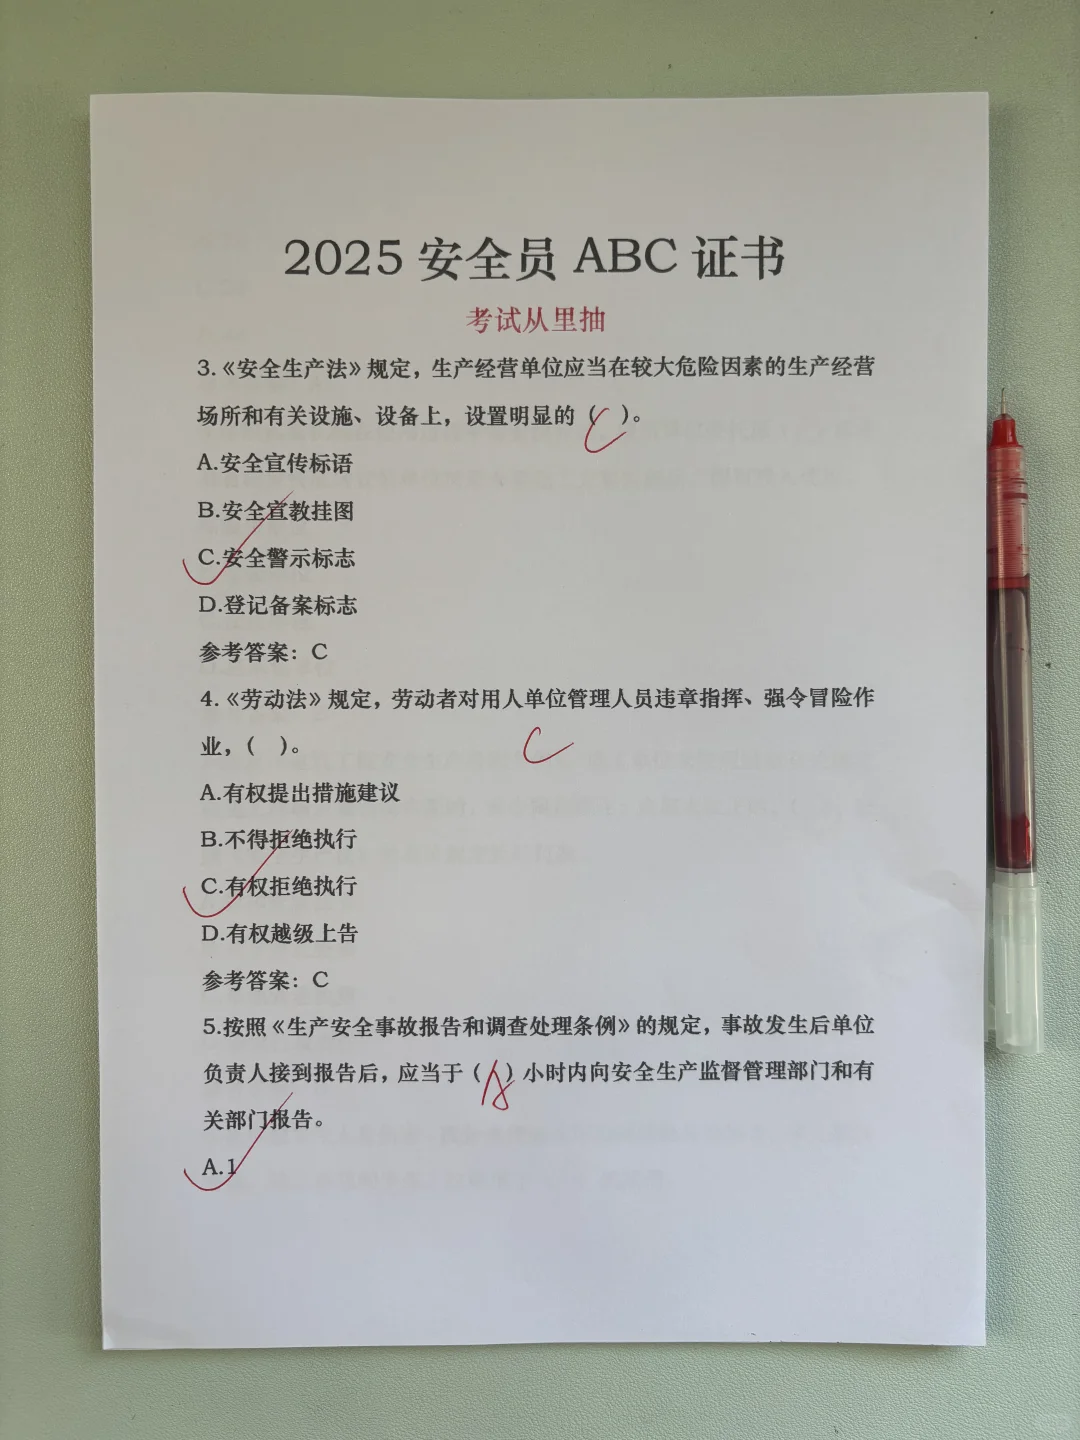 2025 安全员 ABC 证书
考试从里抽
3.《安全生产法》规定，生产经营单位应当在较大危险因素的生产经营
场所和有关设施、设备上，设置明显的（C）。
A.安全宣传标语
B.安全宣教挂图
C.安全警示标志
D.登记备案标志
参考答案：C
4.《劳动法》规定，劳动者对用人单位管理人员违章指挥、强令冒险作
业，（ ）。
C
A.有权提出措施建议
B.不得拒绝执行
C.有权拒绝执行
D.有权越级上告
参考答案：C
5.按照《生产安全事故报告和调查处理条例》的规定，事故发生后单位
负责人接到报告后，应当于（A）小时内向安全生产监督管理部门和有
关部门报告。
A.1